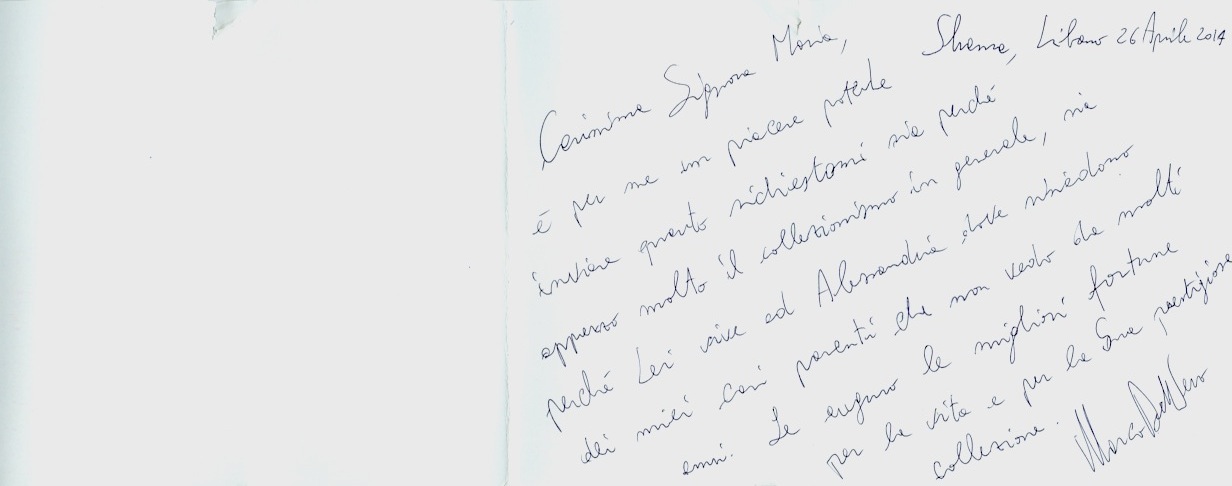 Shama, Libano 26 Aprile 2014
Carissima Signora Maria,
è per me un piacere poterle
inviare quanto richiestomi sia perché
apprezzo molto il collezionismo in generale, sia
perché Lei vive ad Alessandria dove risiedono
dei miei cari parenti che non vedo da molti
anni. Le auguro le migliori fortune
per la vita e per la Sua prestigiosa
collezione.
Marco